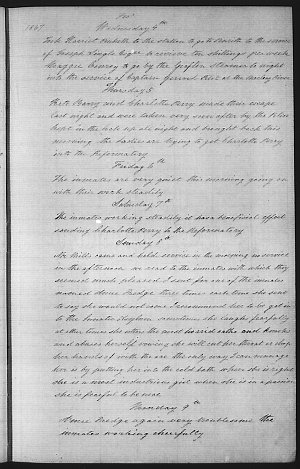 1867
Wednesday 4th
Took Harriet to the station to go to the service
of Joseph Esqre to receive ten shillings per week
Maggie to go by the Grafton steamer to night
into the service of Captain at the River
Thursday 5
Kate Barry and Charlotte Perry made their escape
last night and were taken very soon after by the
kept in the lock up all night and brought back this
morning the ladies are trying to get Charlotte Perry
into the Reformatory
Friday 6th
The inmates are very quiet this morning going on
with their work steadily
Saturday 7th
The inmates working steadily it has a beneficial effect
sending Charlotte Perry to the Reformatory
Sunday 8th
Mr Mills came and held service in the morning no service
in the afternoon we read to the inmates with which they
seemed much pleased I sent for one of the inmates
named Annie Madge three times each time she sent
to say she would not come I recommend her to be got in
to the Lunatic Asylum sometimes she laughs fearfully
at other times she utters the most horrid oaths and
and abuses herself vowing she will cut her throat or chop
her hands off with the axe the only way I can manage
her is by putting her into the cold bath when she is right
she is a most industrious girl when she is in a passion
she is fearful to be near
Monday 9th
Annie Madge again very troublesome the
inmates working cheerfully